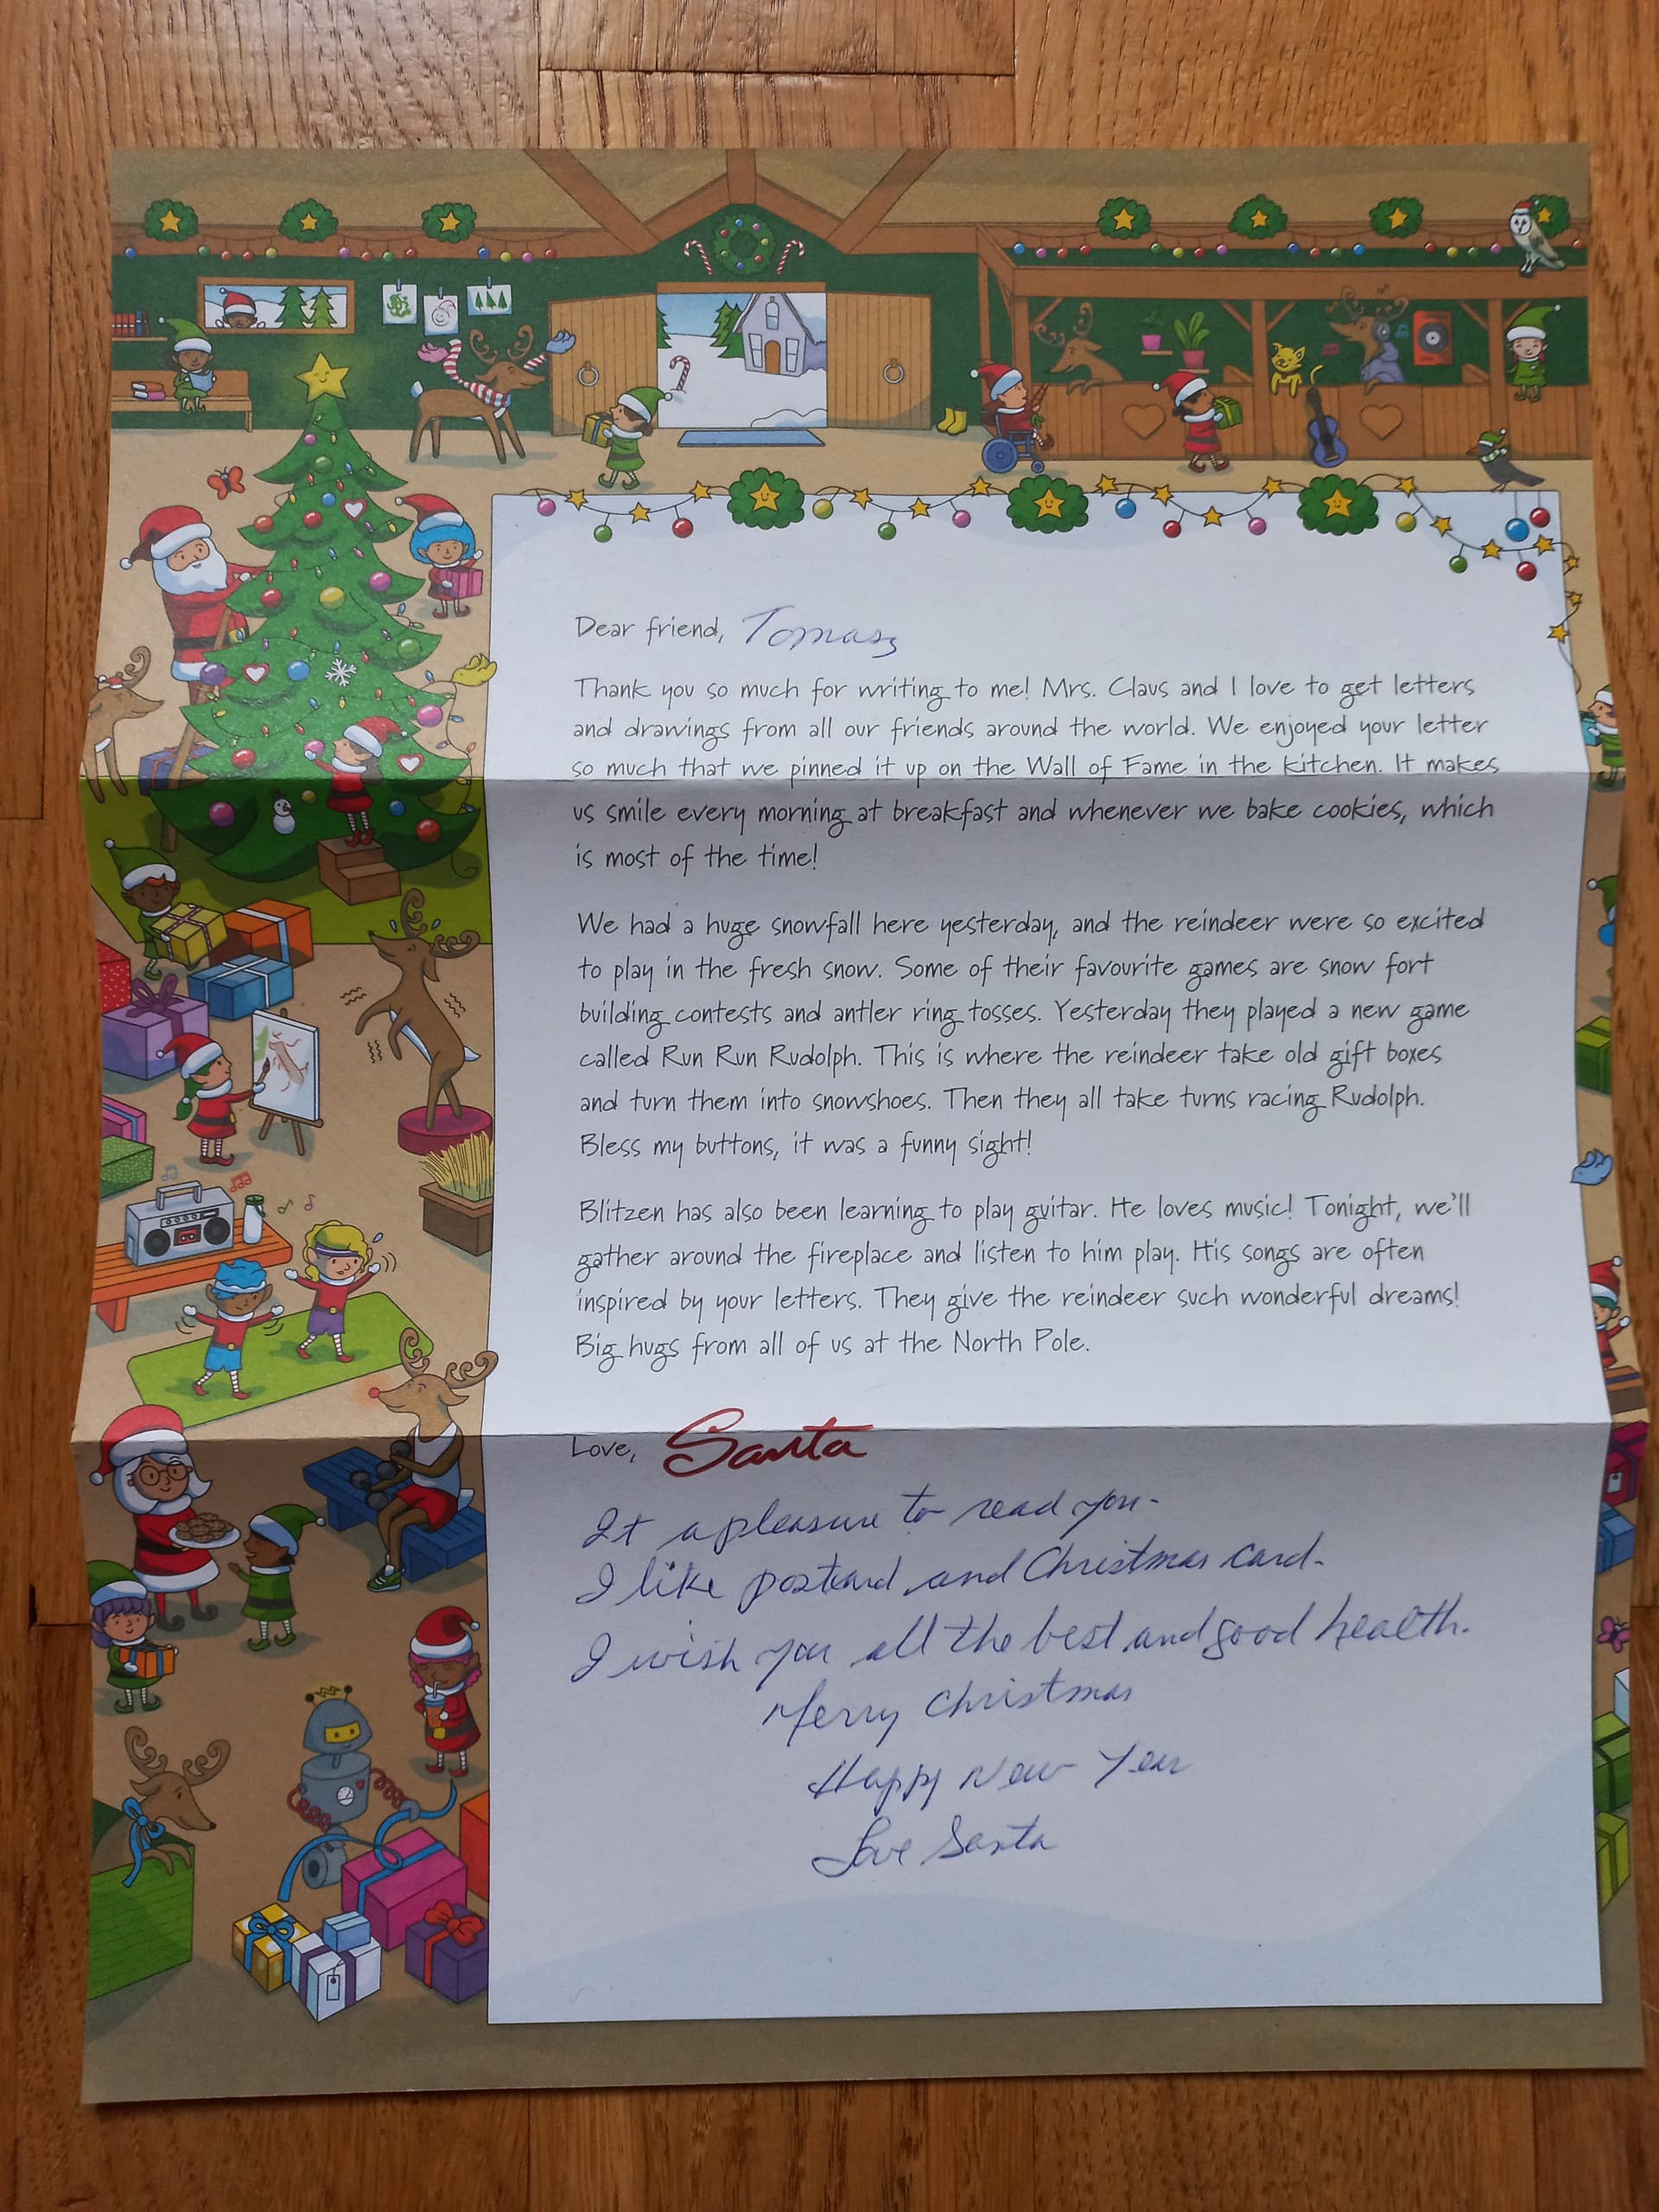 Dear friend, Tomasz
Thank you so much for writing to me! Mrs. Claus and I love to get letters
and drawings from all our friends around the world. We enjoyed your letter
so much that we pinned it up on the Wall of Fame in the kitchen. It makes
us smile every morning at breakfast and whenever we bake cookies, which
is most of the time!
We had a huge snowfall here yesterday, and the reindeer were so excited
to play in the fresh snow. Some of their favourite games are snow fort
building contests and antler ring tosses. Yesterday they played a new game
called Run Run Rudolph. This is where the reindeer take old gift boxes
and turn them into snowshoes. Then they all take turns racing Rudolph.
Bless my buttons, it was a funny sight!
Blitzen has also been learning to play guitar. He loves music! Tonight, we'll
gather around the fireplace and listen to him play. His songs are often
inspired by your letters. They give the reindeer such wonderful dreams!
Big hugs from all of us at the North Pole.
Love, Santa
It a pleasure to read you.
I like postcard and Christmas card.
I wish you all the best and good health.
Merry Christmas
Happy New Year
Love Santa